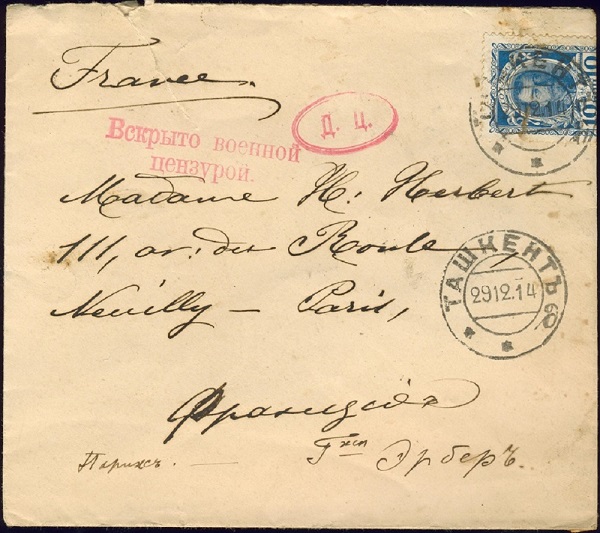 France.
ТАШКЕНТЪ
12.14
10
Д. Ц.
Вскрыто военной
цензурой.
Madame H: Herbert
111, av: du Roule,
Neuilly — Paris,
ТАШКЕНТЪ
29 12.14
Франція
Г-жѣ Эрберъ.
Парижъ. —